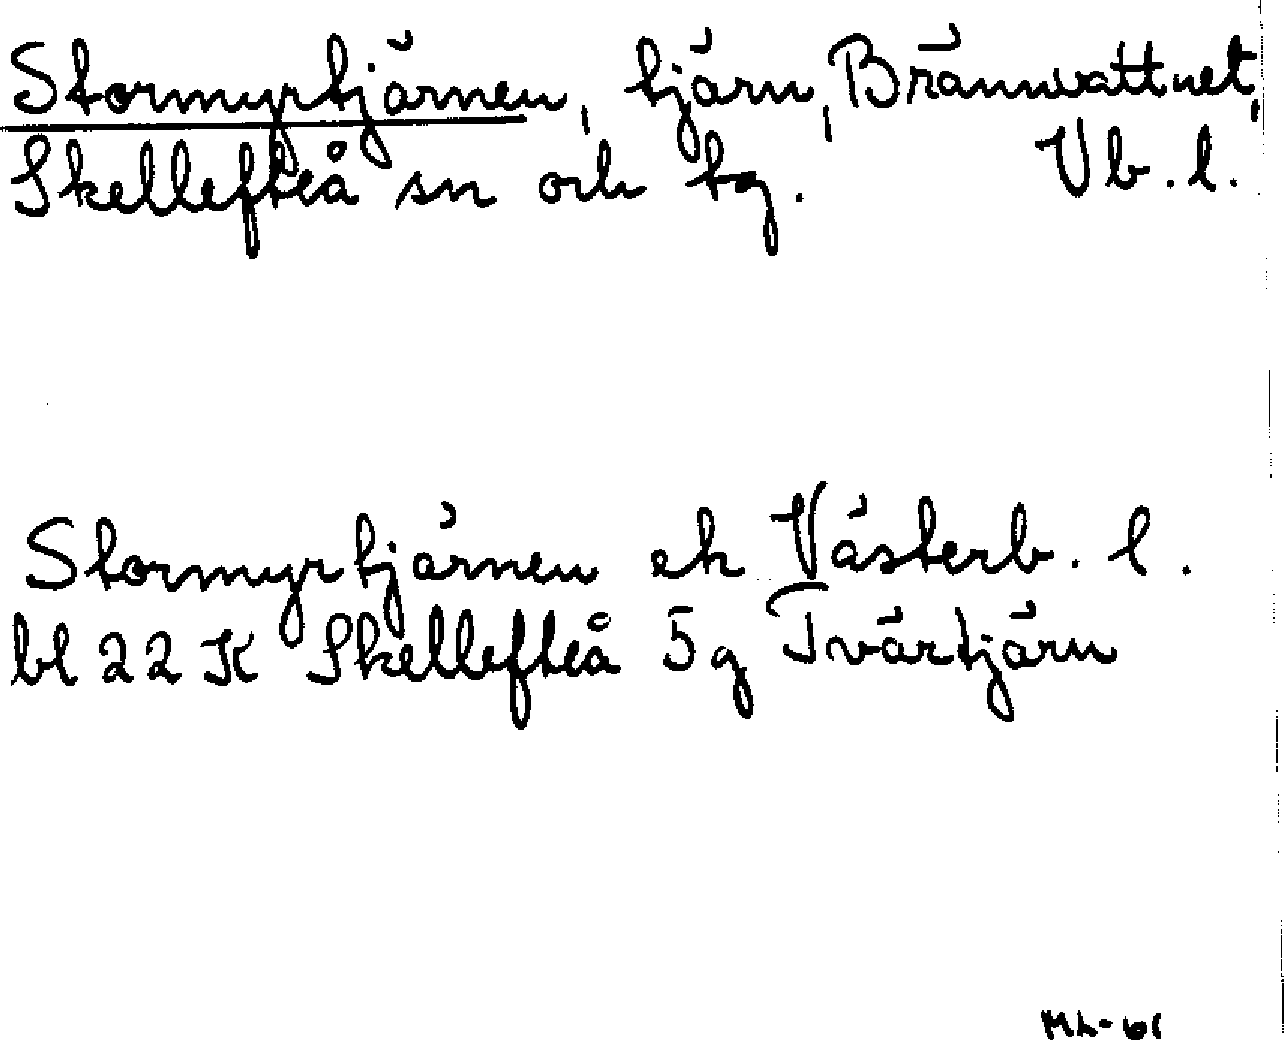 Stormyrtjärnen, tjärn, Brännvattnet,
Skellefteå sn och tg. Vb. l.
Stormyrtjärnen ek Västerb. l.
bl 22 K Skellefteå 5g Tvärtjärn
ML-61